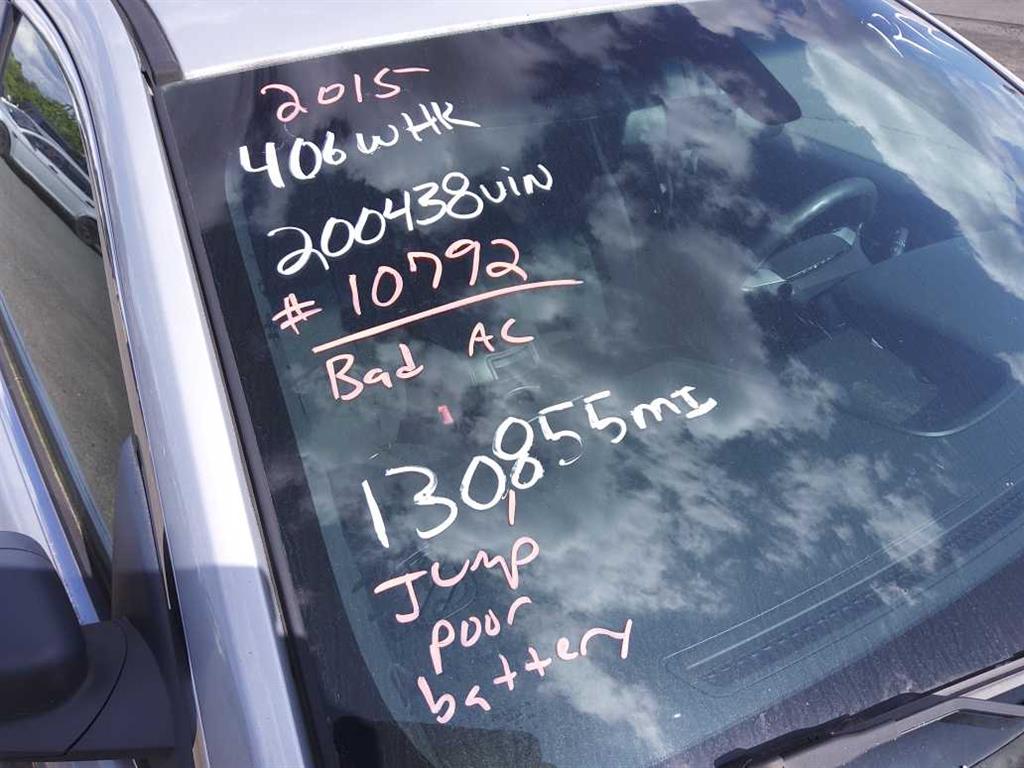 2015
406WHK
200438vin
# 10792
Bad AC
130855mI
Jump
poor
battery